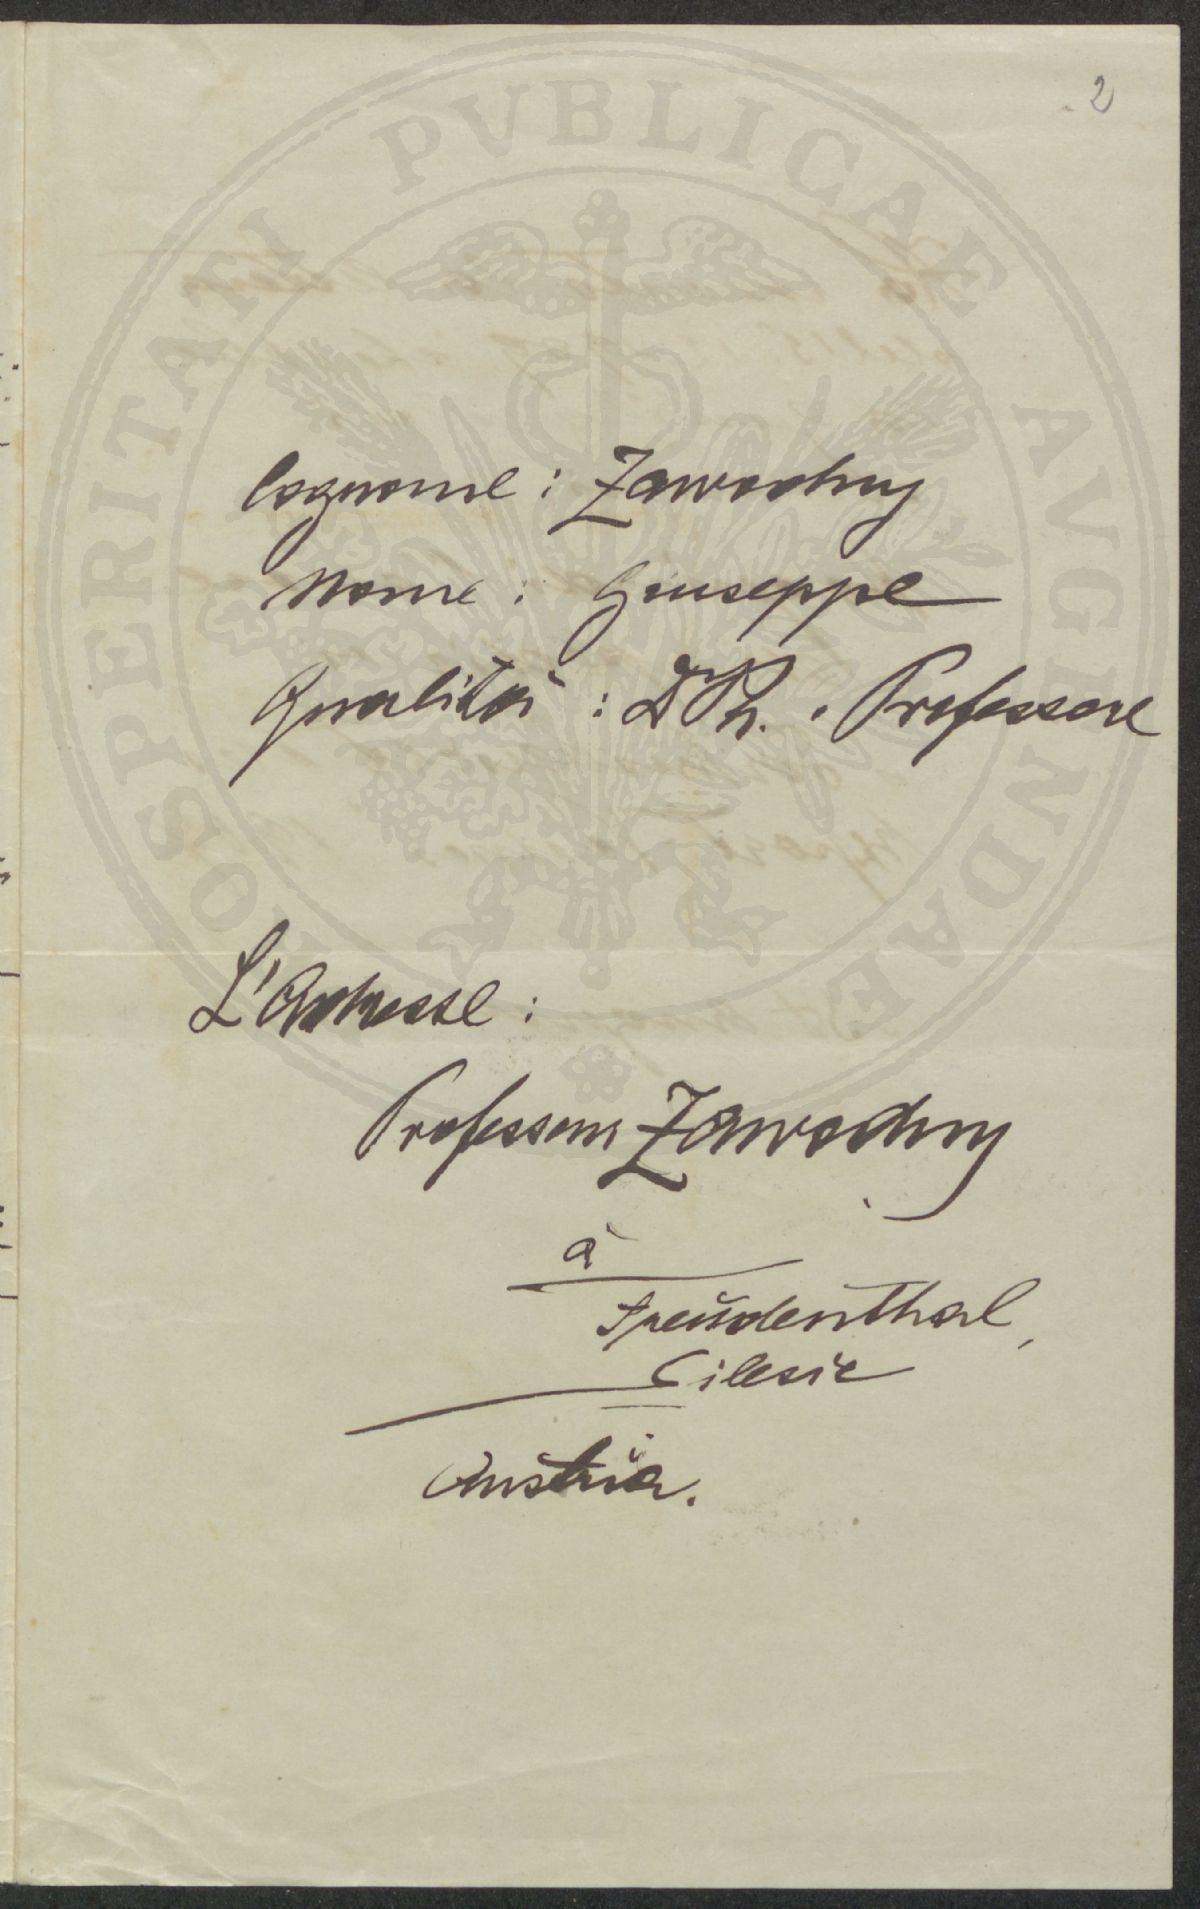 2
Cognome : Zawodny
Nome : Giuseppe
Qualità : Dr Ph. . Professore
L'Adresse :
Professeur Zawodny
à
Freudenthal,
Cilesie
Austria.
PROSPERITATI PVBLICAE AVGENDAE